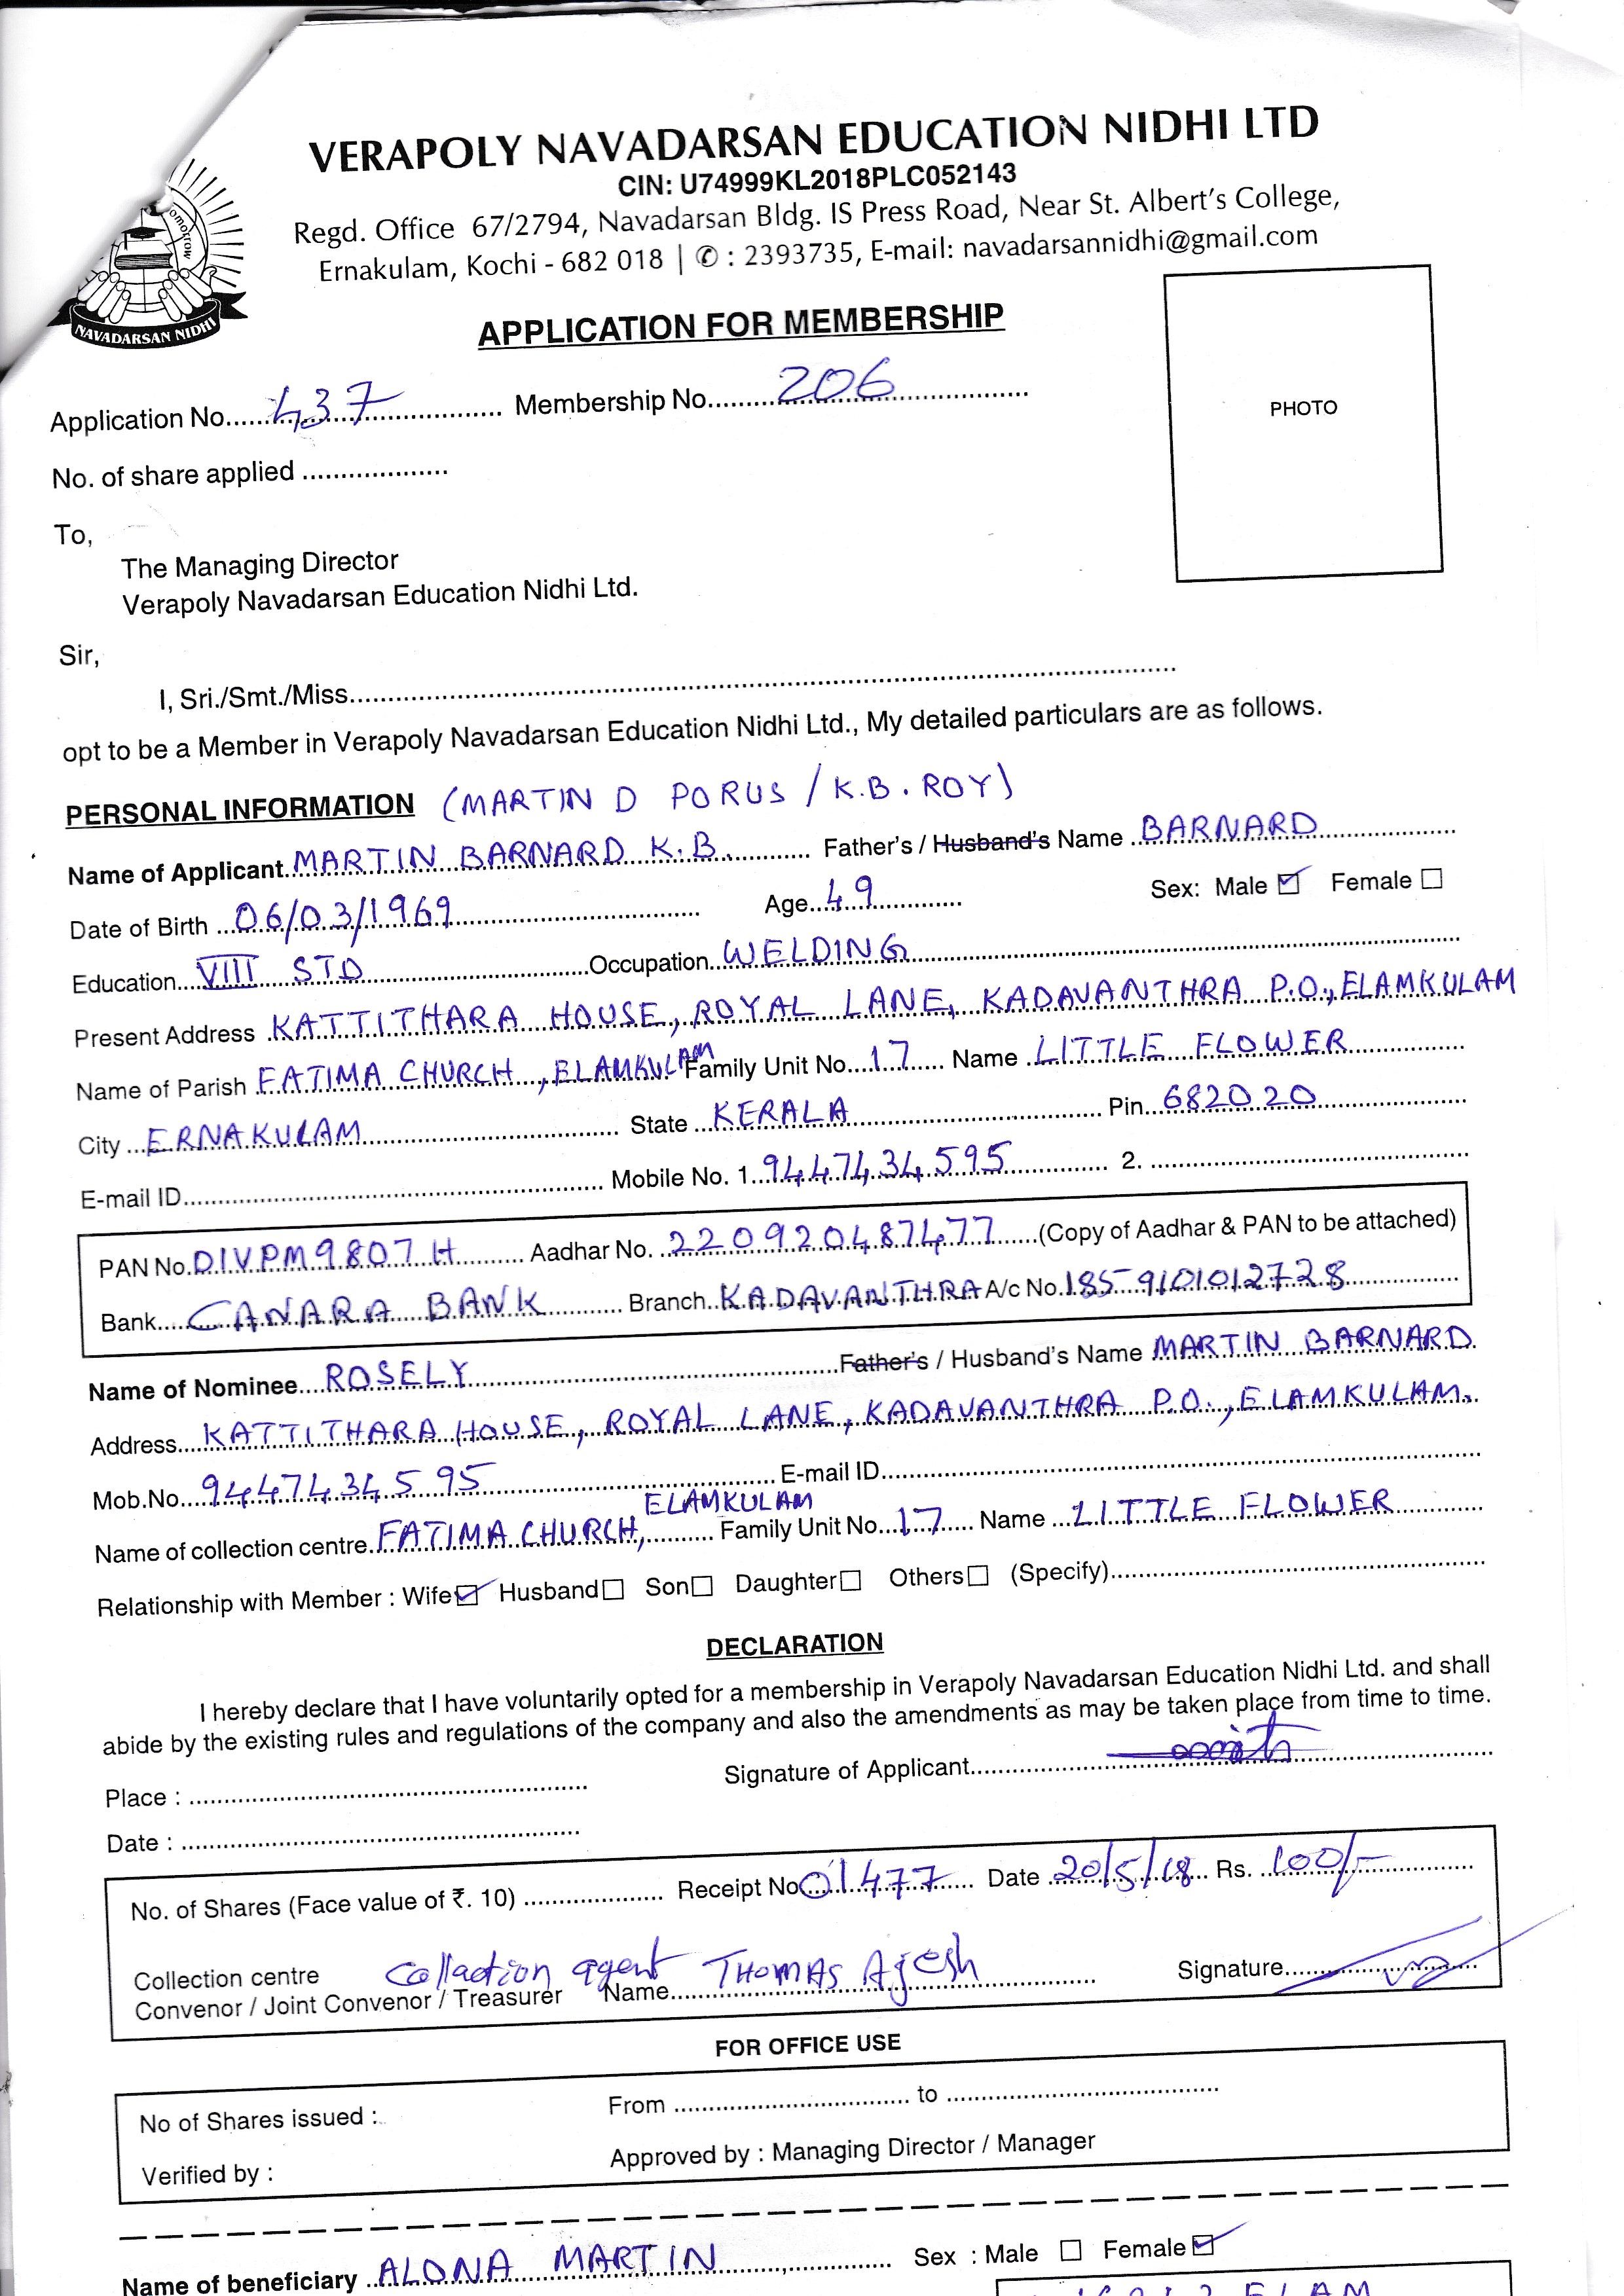 VERAPOLY NAVADARSAN EDUCATION NIDHI LTD
CIN: U74999KL2018PLC052143
Regd. Office 67/2794, Navadarsan Bldg. IS Press Road, Near St. Albert's College,
Ernakulam, Kochi - 682 018 | ✆ : 2393735, E-mail: navadarsannidhi@gmail.com
omorrow
NAVADARSAN NIDHI
APPLICATION FOR MEMBERSHIP
PHOTO
Application No. 437 Membership No. 206
No. of share applied
To,
The Managing Director
Verapoly Navadarsan Education Nidhi Ltd.
Sir,
I, Sri./Smt./Miss
opt to be a Member in Verapoly Navadarsan Education Nidhi Ltd., My detailed particulars are as follows.
PERSONAL INFORMATION (MARTIN D PORUS / K.B. ROY)
Name of Applicant MARTIN BARNARD K.B. Father's / Husband's Name BARNARD
Date of Birth 06/03/1969 Age 49 Sex: Male ☑ Female ☐
Education VIII STD Occupation WELDING
Present Address KATTITHARA HOUSE, ROYAL LANE, KADAVANTHRA P.O., ELAMKULAM
Name of Parish FATIMA CHURCH, ELAMKULAM Family Unit No. 17 Name LITTLE FLOWER
City ERNAKULAM State KERALA Pin 682020
E-mail ID Mobile No. 1. 9447434595 2.
PAN No. DIVPM9807H Aadhar No. 220920487477 (Copy of Aadhar & PAN to be attached)
Bank CANARA BANK Branch KADAVANTHRA A/c No. 1859101012728
Name of Nominee ROSELY Father's / Husband's Name MARTIN BARNARD
Address KATTITHARA HOUSE, ROYAL LANE, KADAVANTHRA P.O., ELAMKULAM.
Mob.No. 9447434595 E-mail ID
Name of collection centre FATIMA CHURCH, ELAMKULAM Family Unit No. 17 Name LITTLE FLOWER
Relationship with Member : Wife ☑ Husband ☐ Son ☐ Daughter ☐ Others ☐ (Specify)
DECLARATION
I hereby declare that I have voluntarily opted for a membership in Verapoly Navadarsan Education Nidhi Ltd. and shall
abide by the existing rules and regulations of the company and also the amendments as may be taken place from time to time.
Signature of Applicant
Place :
Date :
No. of Shares (Face value of ₹. 10) Receipt No. 01477 Date 20/5/18 Rs. 100/-
Collection centre Collaction agent THOMAS Ajesh Signature
Convenor / Joint Convenor / Treasurer Name
FOR OFFICE USE
No of Shares issued : From to
Verified by : Approved by : Managing Director / Manager
Name of beneficiary ALONA MARTIN Sex : Male ☐ Female ☑